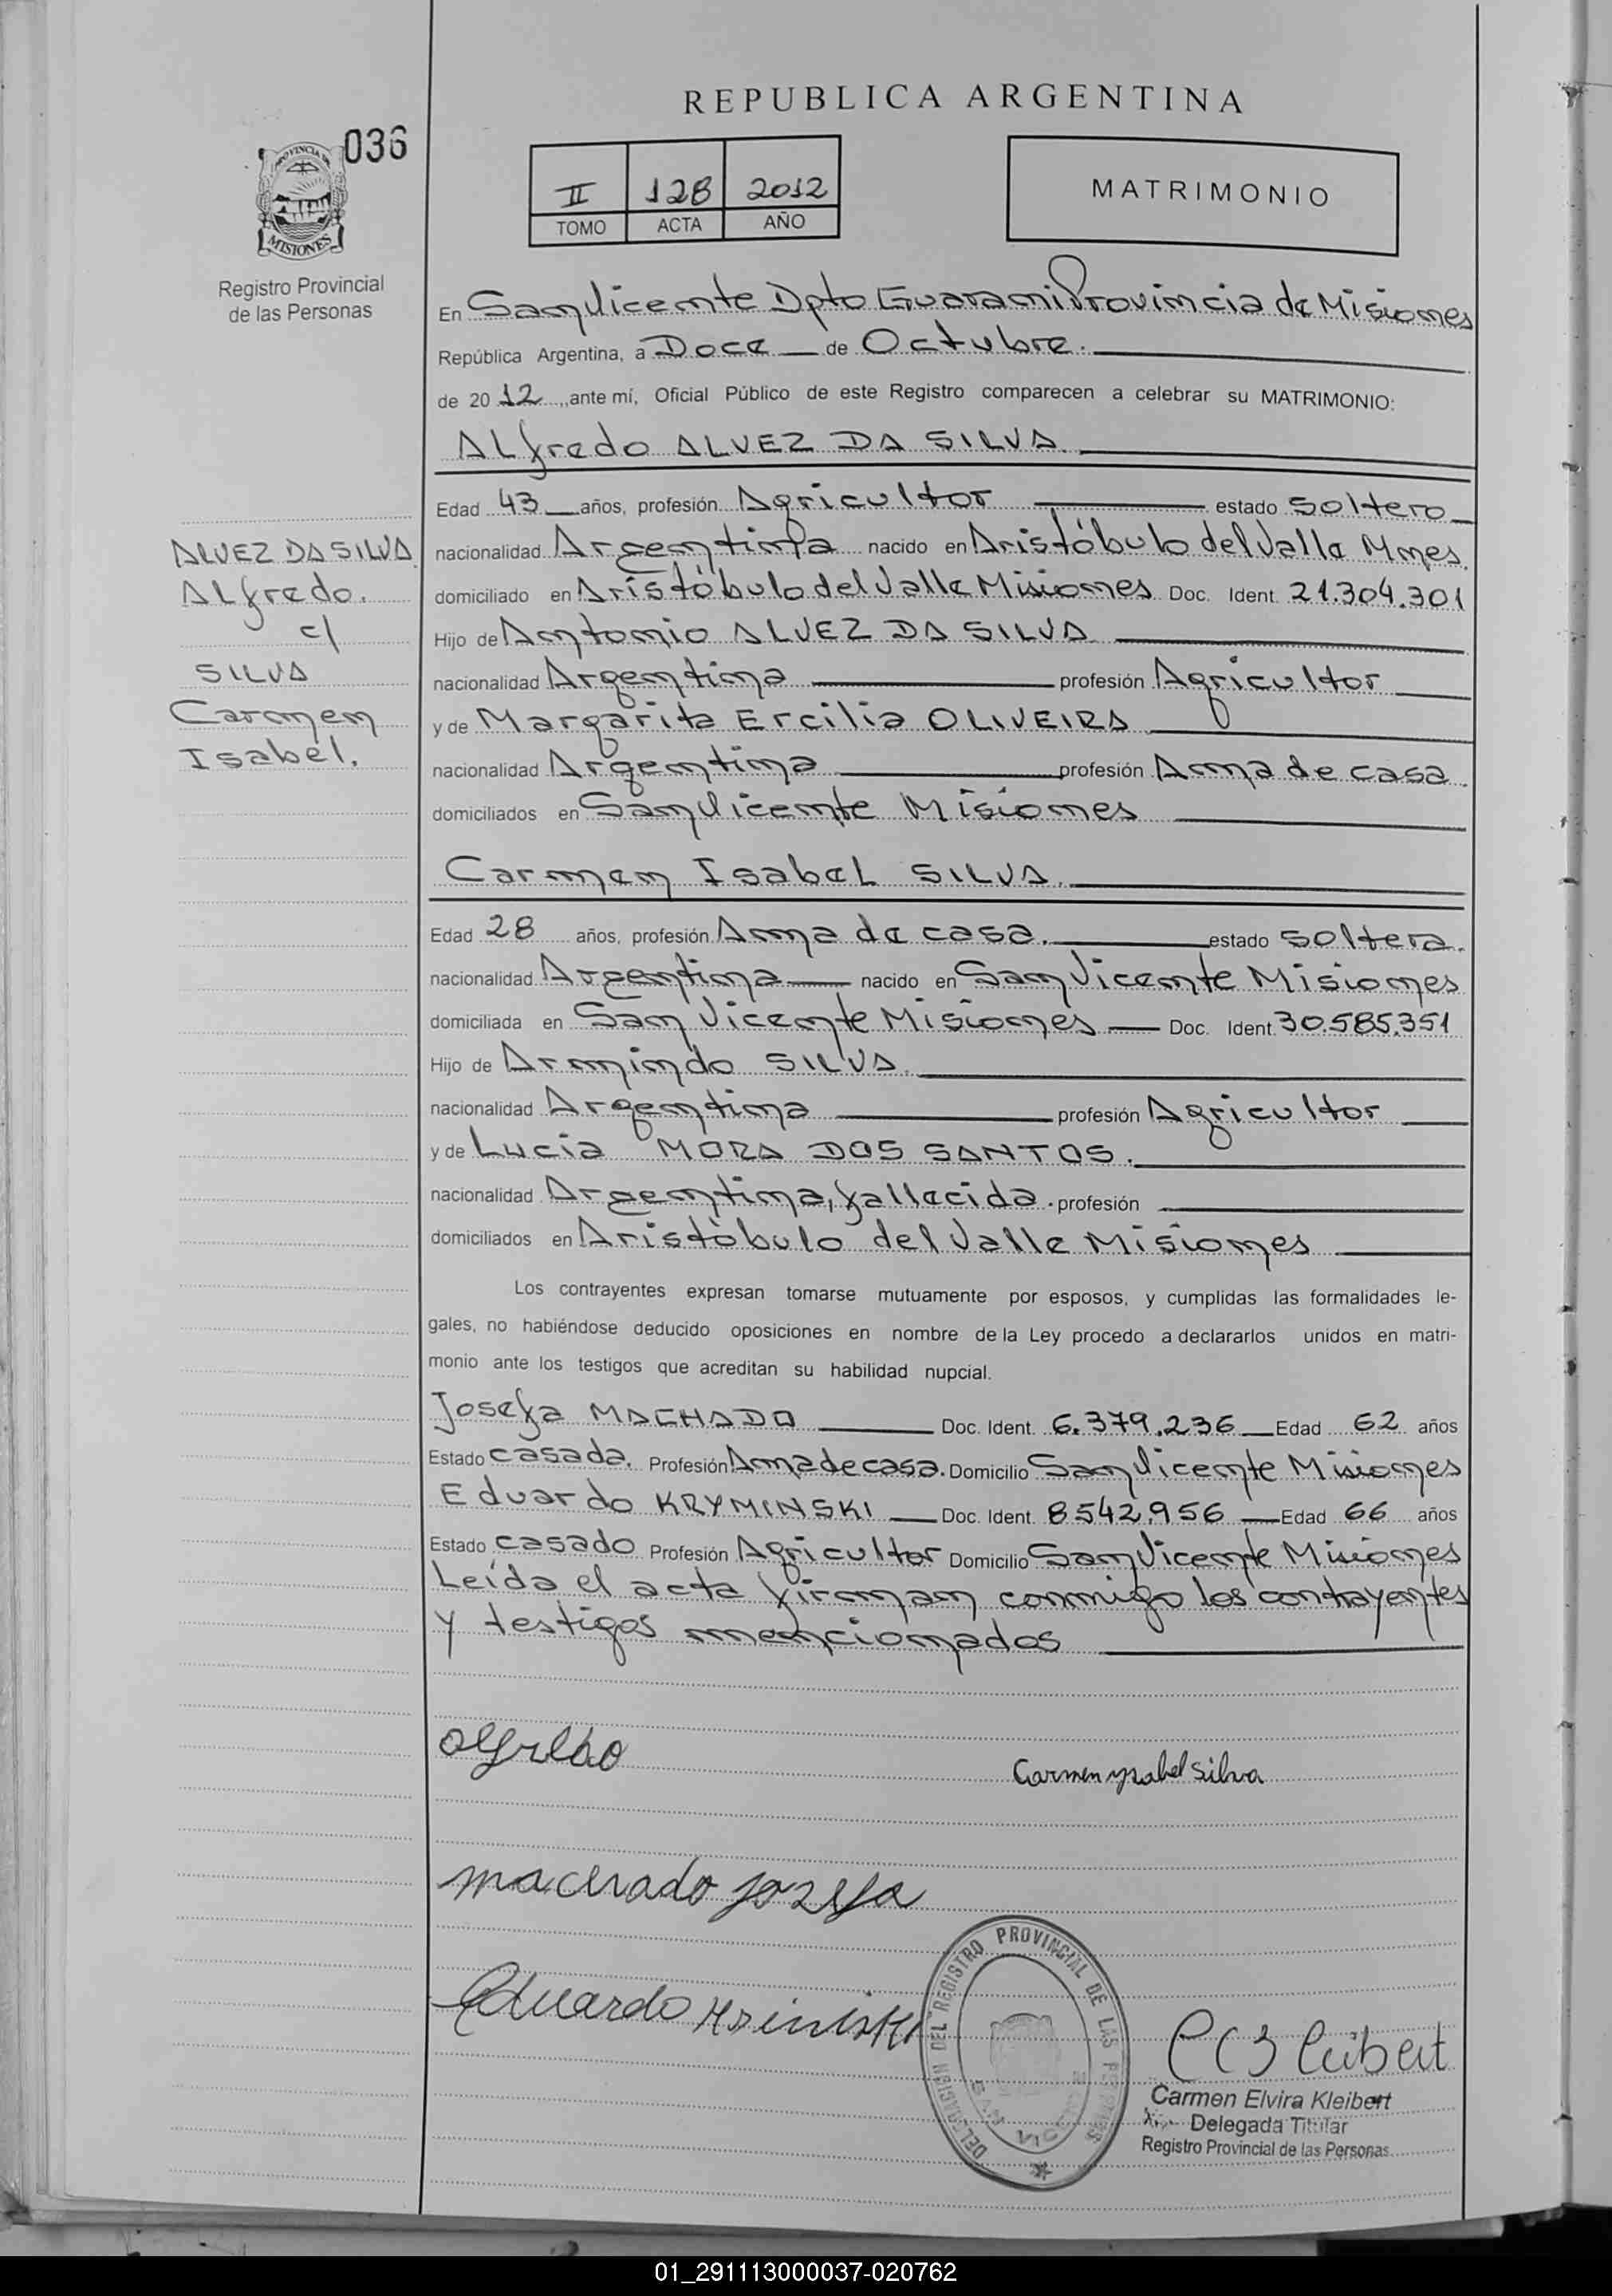 REPUBLICA ARGENTINA
036
II 128 2012
TOMO ACTA AÑO
MATRIMONIO
PROVINCIA DE
MISIONES
Registro Provincial
de las Personas
En San Vicente Dpto Guarani Provincia de Misiones
República Argentina, a Doce de Octubre.
de 2012, ante mí, Oficial Público de este Registro comparecen a celebrar su MATRIMONIO:
Alfredo ALVEZ DA SILVA.
Edad 43 años, profesión Agricultor estado Soltero
nacionalidad Argentina nacido en Aristóbulo del Valle Mnes.
domiciliado en Aristóbulo del Valle Misiones Doc. Ident. 21.304.301
Hijo de Antonio ALVEZ DA SILVA
nacionalidad Argentina profesión Agricultor
y de Margarita Ercilia OLIVEIRA
nacionalidad Argentina profesión Ama de casa.
domiciliados en San Vicente Misiones
ALVEZ DA SILVA
Alfredo.
c/
SILVA
Carmen
Isabel.
Carmen Isabel SILVA.
Edad 28 años, profesión Ama de casa. estado soltera.
nacionalidad Argentina nacido en San Vicente Misiones
domiciliada en San Vicente Misiones Doc. Ident. 30.585.351
Hijo de Armindo SILVA.
nacionalidad Argentina profesión Agricultor
y de Lucia MORA DOS SANTOS.
nacionalidad Argentina, fallecida. profesión
domiciliados en Aristóbulo del Valle Misiones
Los contrayentes expresan tomarse mutuamente por esposos, y cumplidas las formalidades le-
gales, no habiéndose deducido oposiciones en nombre de la Ley procedo a declararlos unidos en matri-
monio ante los testigos que acreditan su habilidad nupcial.
Josefa MACHADO Doc. Ident. 6.379.236 Edad 62 años
Estado casada. Profesión Ama de casa. Domicilio San Vicente Misiones
Eduardo KRYMINSKI Doc. Ident. 8542.956 Edad 66 años
Estado casado Profesión Agricultor Domicilio San Vicente Misiones
Leída el acta firman conmigo los contrayentes
y testigos mencionados
Carmen ysabel Silva
machado jozefa
Eduardo
DELEGACION DEL REGISTRO PROVINCIAL DE LAS PERSONAS
Carmen Elvira Kleibert
Delegada Titular
Registro Provincial de las Personas
01_291113000037-020762